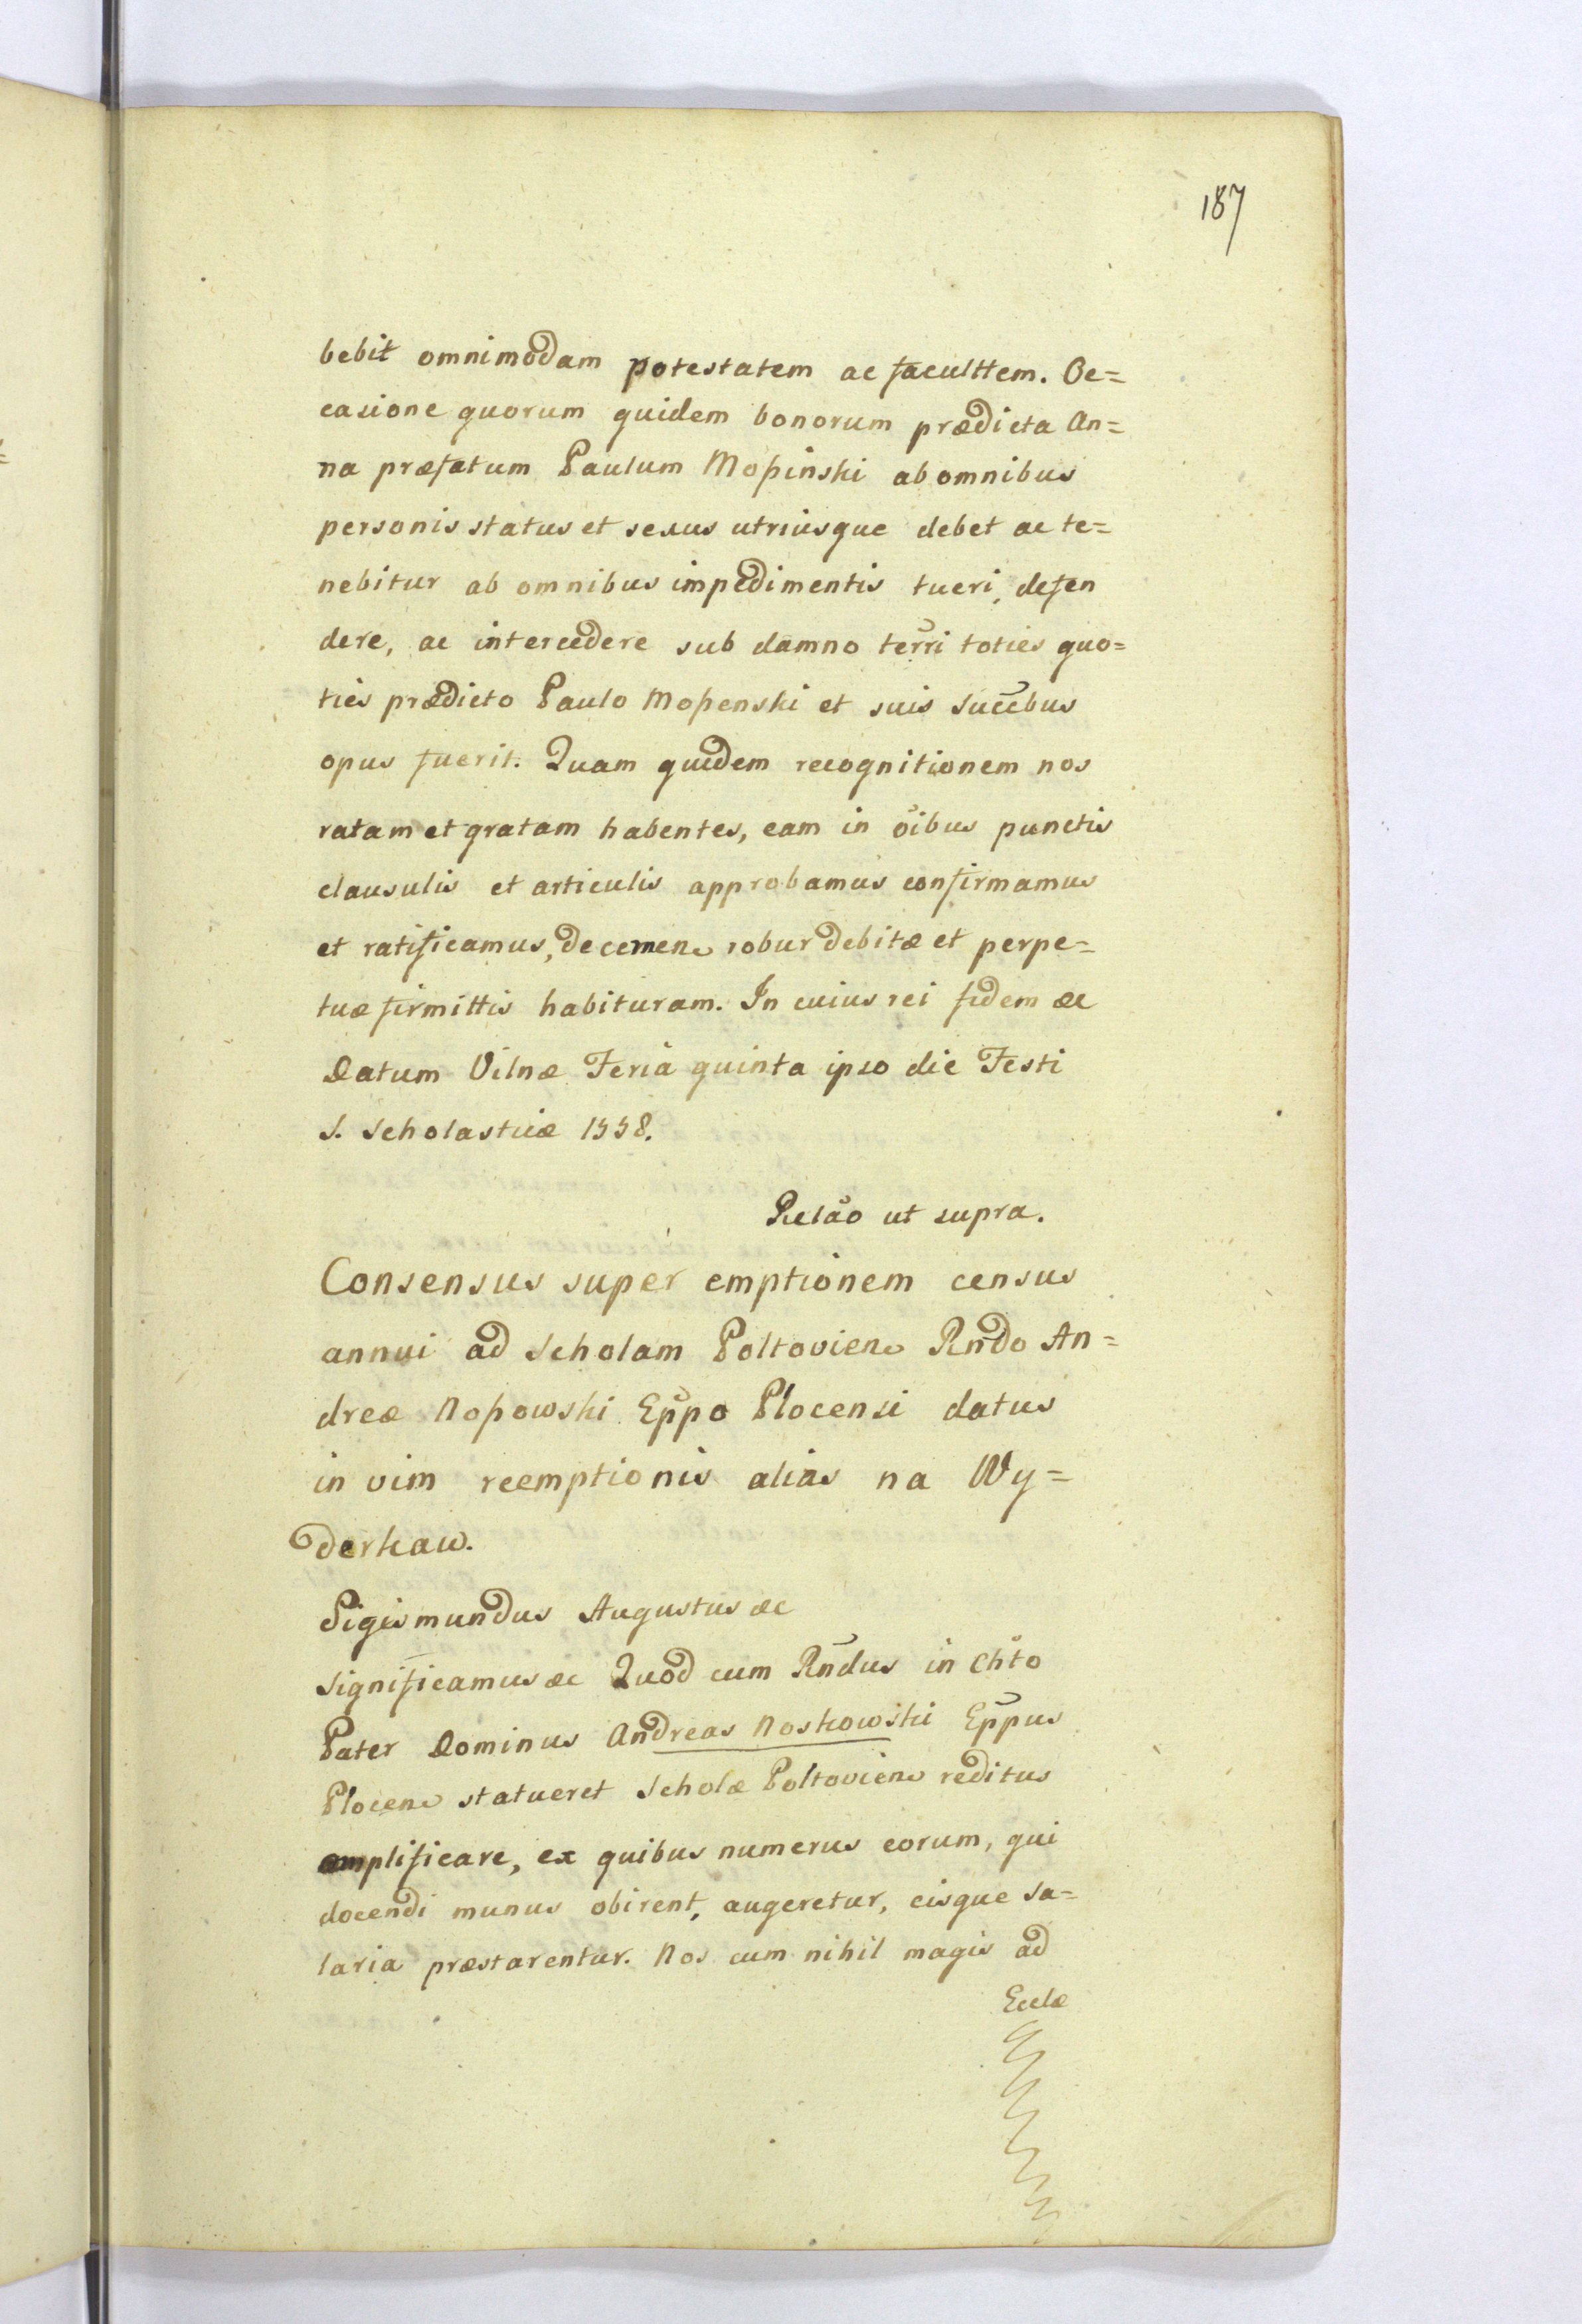 187
bebit omnimodam potestatem ac faculttem. Oc=
casione quorum quidem bonorum prædicta An=
na præfatum Paulum Moßinski ab omnibus
personis status et sexus utriusque debet ac te=
nebitur ab omnibus impedimentis tueri, defen
dere, ac intercedere sub damno terri toties quo=
ties prædicto Paulo Moßenski et suis succbus
opus fuerit. Quam quidem recognitionem nos
ratam et gratam habentes, eam in oibus punctis
clausulis et articulis approbamus confirmamus
et ratificamus, decernen robur debitæ et perpe=
tuæ firmittis habituram. In cuius rei fidem &c
Datum Vilnæ Feria quinta ipso die Festi
S. Scholasticæ 1558.
Relao ut supra.
Consensus super emptionem census
annui ad Scholam Poltovien Rndo An=
dreæ Noßowski Eppo Plocensi datus
in vim reemptionis alias na Wy=
derkaw.
Sigismundus Augustus &c
Significamus &c Quod cum Rndus in Chto
Pater Dominus Andreas Noskowski Eppus
Plocen statueret Scholæ Poltovien reditus
amplificare, ex quibus numerus eorum, qui
docendi munus obirent, augeretur, eisque sa=
laria præstarentur. Nos cum nihil magis ad
Eclæ